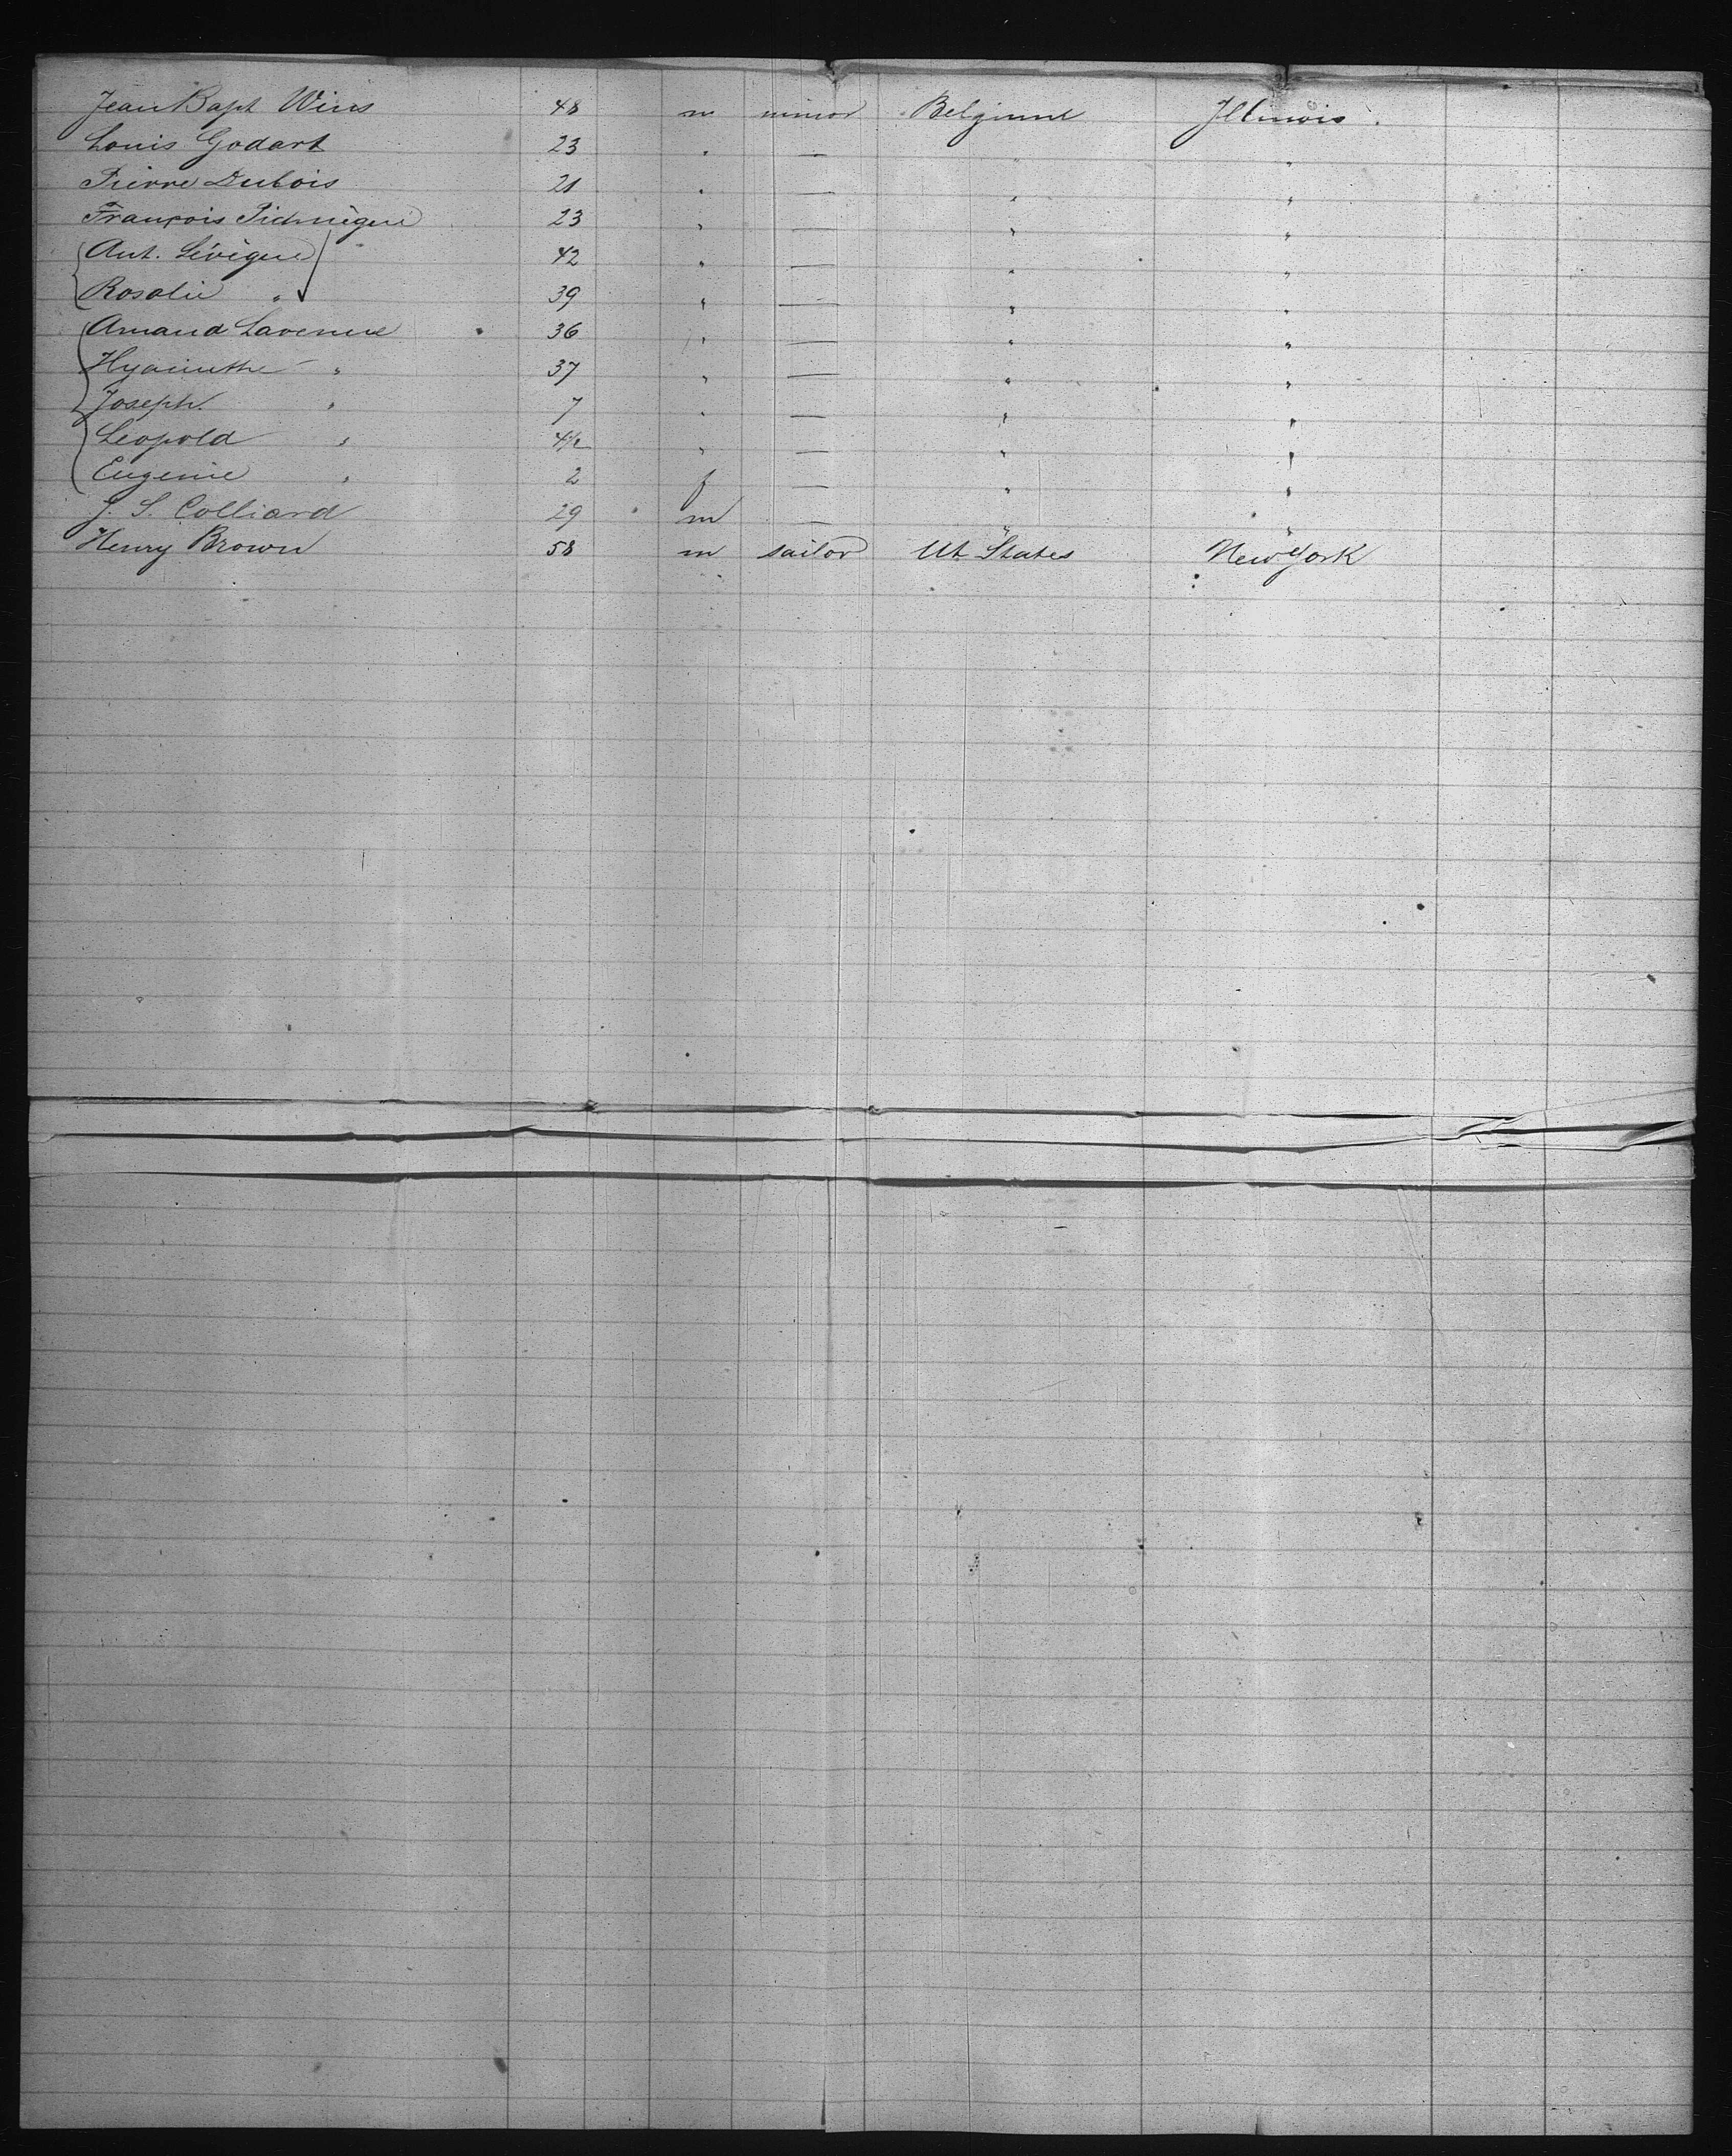 Jean Bapt Wins 48 m minor Belgium Illinois.
Louis Godart 23 " — " "
Pierre Dubois 21 " — " "
François 23 " — " "
Ant. Lévèque 42 " — " "
Rosalie " 39 " — " "
Amand Lavenne 36 " — " "
Hyacinthe " 37 " — " "
Joseph " 7 " — " "
Leopold " 4½ " — " "
Eugenie " 2 f — " "
J. S. Colliard 29 m — " "
Henry Brown 58 m sailor Ut States New York